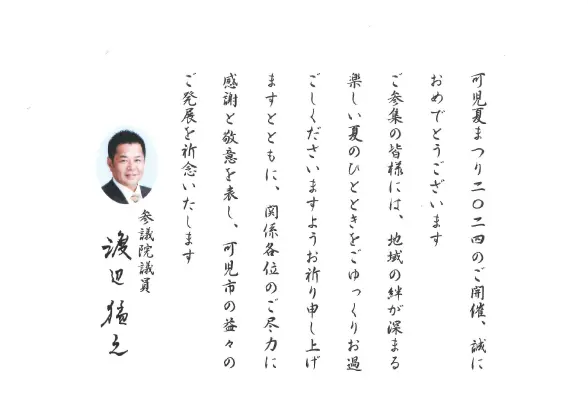 可児夏まつり二〇二四のご開催、誠に
おめでとうございます
ご参集の皆様には、地域の絆が深まる
楽しい夏のひとときをごゆっくりお過
ごしくださいますようお祈り申し上げ
ますとともに、関係各位のご尽力に
感謝と敬意を表し、可児市の益々の
ご発展を祈念いたします
参議院議員
渡辺猛之